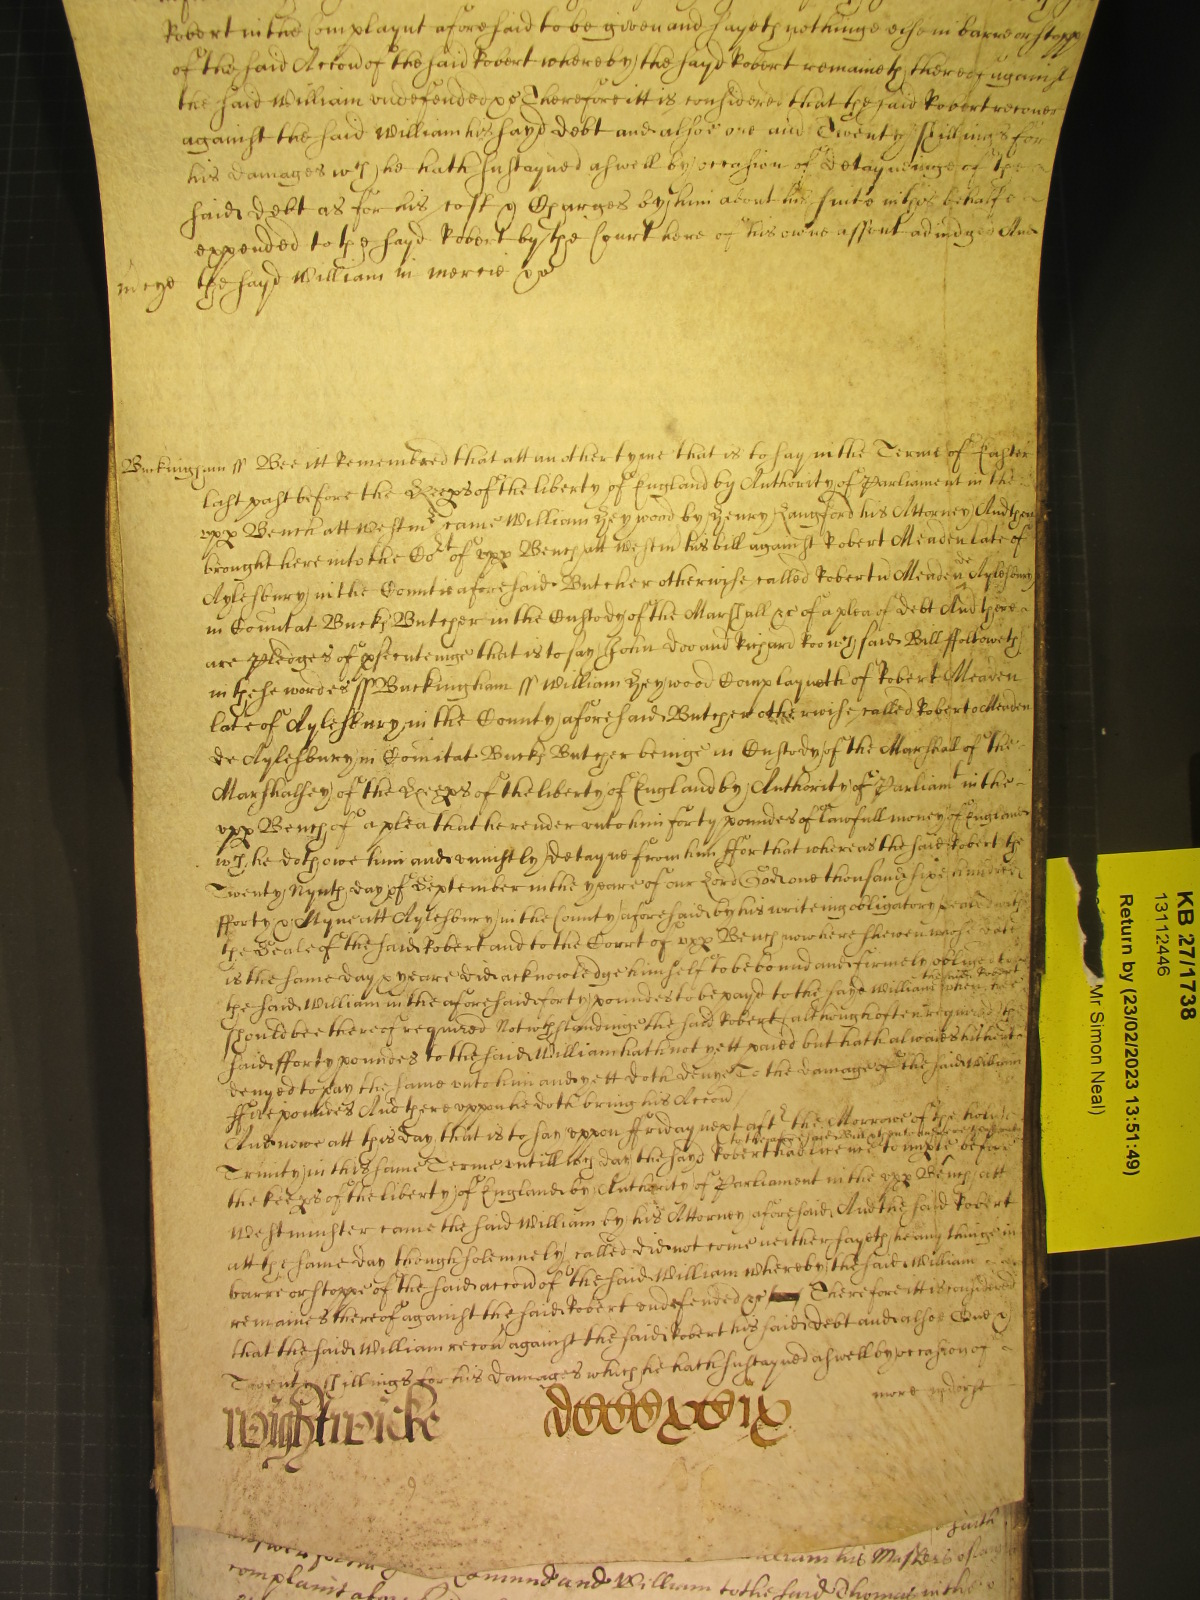 Robert in the Complaynt aforesaid to be given and sayeth nothinge else in barre or stopp
of the said Accon of the said Robert whereby the sayd Robert remaineth thereof against
the said William undefended &c Therefore itt is considered that the said Robert recover
against the said William his sayd debt and alsoe one and Twenty shillings for
his damages wch he hath sustayned aswell by occasion of detayneinge of the
said debt as for his costs & Charges by him about his suite in this behalfe
expended to the sayd Robert by the Court here of his owne assent adiudged And
mcye the sayd William in mercie &c
Buckingham ss Bee itt Remembred that att another tyme that is to say in the Terme of Easter
last past before the Keeps of the liberty of England by Authority of Parliament in the
upp Bench att Westmr came William Heywood by Henry Langford his Attorney And then
brought here into the Cot of upp Bench att Westm his bill against Robert Meaden late of
Aylesbury in the Countie aforesaid Butcher otherwise called Robertu Meaden de Aylesbury
in Comitat Bucks Butcher in the Custody of the Marshall &c of a plea of debt And there
are Pledges of psecuteinge that is to say John Doo and Richard Roo wch said Bill followeth
in these wordes ss Buckingham ss William Heywood Complayneth of Robert Meaden
late of Aylesbury in the County aforesaid Butcher otherwise called Roberto Meaden
de Aylesbury in Comitat Bucks Butcher beinge in Custody of the Marshall of the
Marshalsey of the Keeps of the liberty of England by Authority of Parliamt in the
upp Bench of a plea that he render unto him forty poundes of lawfull money of England
wch he doth owe him and uniustly detayne from him ffor that whereas the said Robert the
Twenty Nynth day of September in the yeare of our Lord God one thousand sixe hundred
fforty & Nyne att Aylesbury in the County aforesaid by his writeing obligatory sealed with
the Seale of the said Robert and to the Corrt of upp Bench now here shewen whose date
is the same day & yeare did acknowledge himself to be bound and firmely obliged to
the said William in the aforesaid forty poundes to be payd to the sayd William when hee the said Robert
should bee thereof required Notwthstandinge the said Robert (although often required) the
said fforty poundes to the said William hath not yett paied but hath alwaies hitherto
denyed to pay the same unto him and yett doth denye To the damage of the said William
ffive poundes And thereuppon he doth bring his Accon
And nowe att this day that is to say uppon ffriday next aftr the Morrowe of the holy
Trinity in this same Terme untill wch day the sayd Robert had licence to imple to the aforesaid Bill & then to before
the Keeps of the liberty of England by Authority of Parliament in the upp Bench att
Westminster came the said William by his Attorney aforesaid And the said Robert
att the same day though solemnely called did not come neither sayeth he any thinge in
barre or stoppe of the said accon of the said William whereby the said William
remaines thereof against the said Robert undefended &c Therefore itt is considered
that the said William recov against the said Robert his said debt and alsoe One &
Twenty shillings for his Damages which he hath sustayned aswell by occasion of
more indorse
Wightwicke dccccxxix
KB 27/1738
13112446
Return by (23/02/2023 13:51:49)
Mr Simon Neal)
complaint
and William to the said Thomas in the